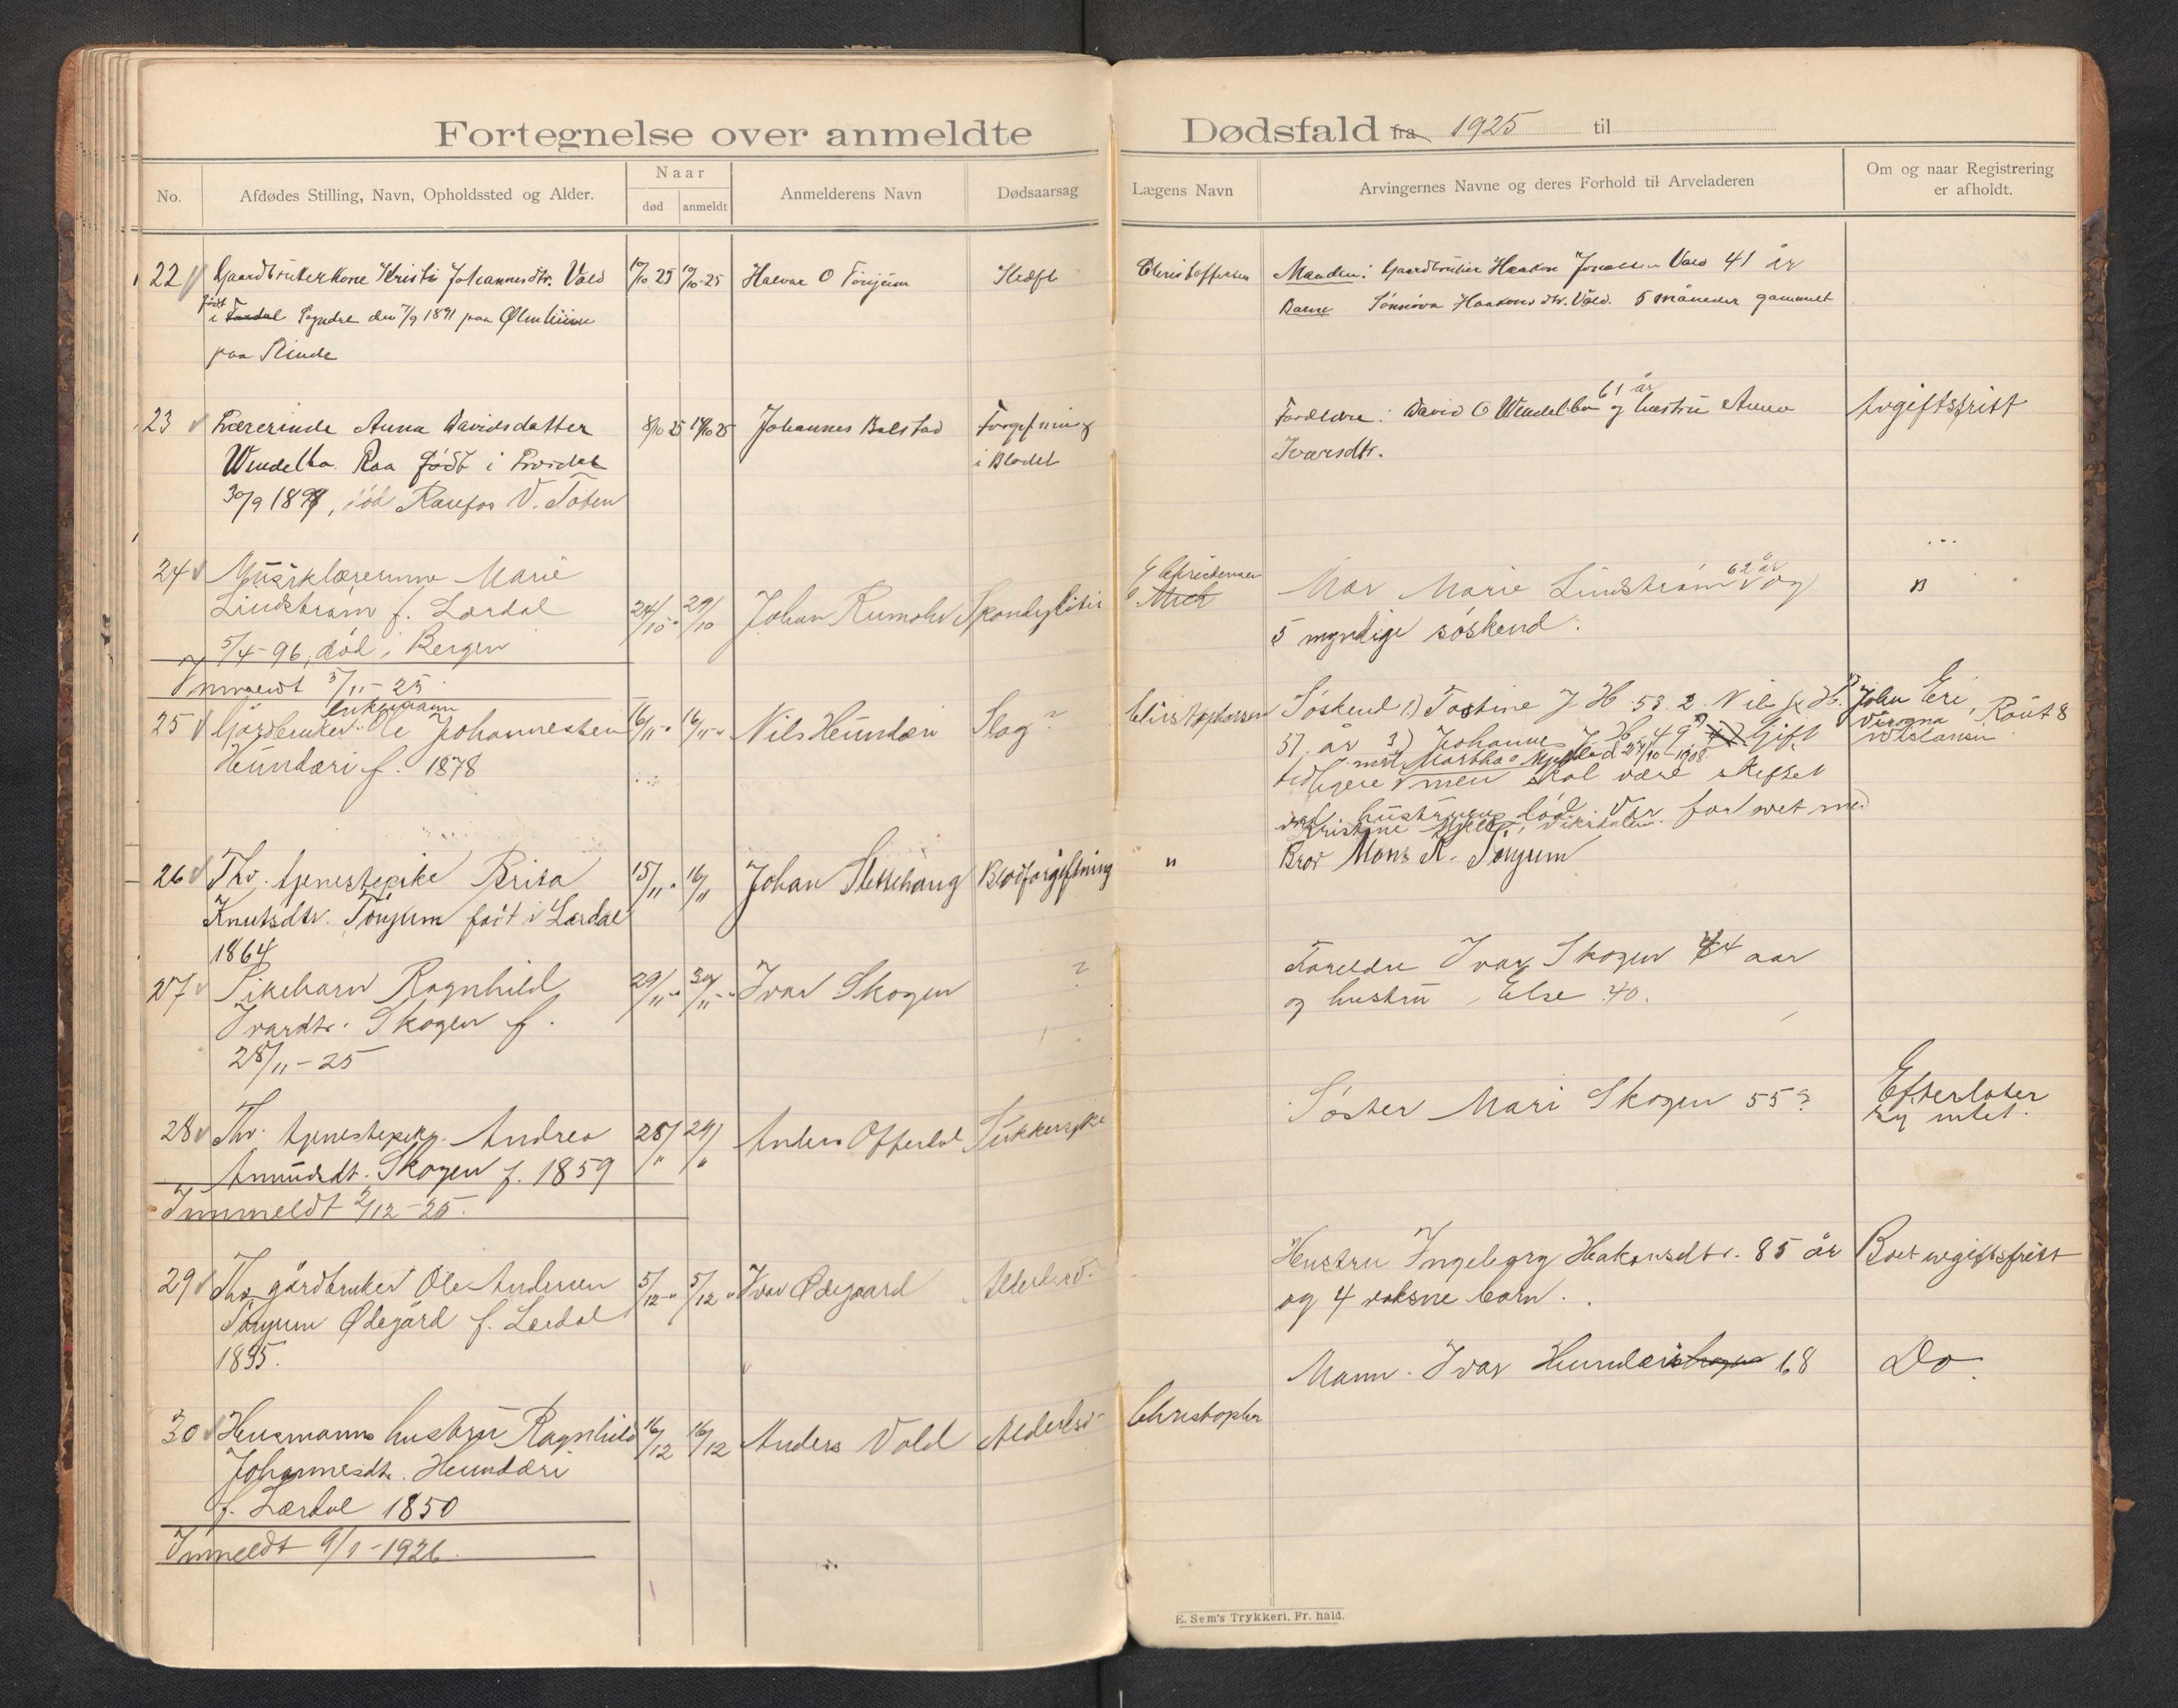 Fortegnelse over anmeldte Dødsfald fra 1925 til
No.
Afdødes Stilling, Navn, Opholdssted og Alder.
Naar
død
anmeldt
Anmelderens Navn
Dødsaarsag
Lægens Navn
Arvingernes Navne og deres Forhold til Arveladeren
Om og naar Registrering
er afholdt.
22 Gaardbrukerkone Kristi Johannesdtr. Vold 10/10 25 Halvar O Tønjum Kræft Christoffersen Manden: Gaardbruker Haakon Vold 41 år
født
i den 7/9 1891 paa
paa Rinde
Barne Sønnøva Haakonsdtr. Vold. 5 måneder gammel
23 Lærerinde Anna Davidsdatter 8/10 25 Johannes Bolstad Forgiftning Forældre: David O Wendelbo 61 år og hustru Anna Avgiftsfritt
Wendelbo. født i
i Blodet
Ivarsdtr.
30/9, død Raufos V. Toten
24 Marie
Lindstrøm f. Lærdal 24/10 29/10 Johan Rumohr Spondylitis Mor Marie Lindstrøm 62 år og "
5/4-96, død i Bergen
5 myndige søskend.
Innmeldt 5/11-25
enkemann
25 Gårdbruker Ole Johannessen 16/11 " 16/11 " Nils Hunderi Slag? Christophersen Søskend 1) Tostine J H 53. 2. Nils J. H. John Eri, Rout 8
Hunderi f. 1878
37. år 3) Johannes J. H. 49 Gift
med Martha
tidligere men skal være skiftet
ved hustruens død. Var forlovet med
Kristine
26 Fhv. tjenestepike Brita 15/11 " 16/11 Johan Blodforgiftning " Bror Mons K. Tønjum
Knutsdtr. Tønjum født i Lærdal
1864
27 Pikebarn Ragnhild 29/11 " 30/11 " Ivar Skogen ? Foreldre Ivar Skogen 44 aar
Ivardtr. Skogen f.
og hustru Else 40.
28/11-25
28 Fhv. tjenestepike Andrea 28/" 29/" Anders Offerdal Sukkersyke Søster Mari Skogen 55? Efterlater
Amundsdt. Skogen f. 1859
sig intet.
Innmeldt 2/12-25.
29 Fhv. gårdbruker Ole Andersen 5/12 " 5/12 " Ivar Ødegaard Alderdod. Hustru Ingeborg Hakonsdtr. 85 år Boet avgiftsfritt
Tønjum Ødegård f. Lerdal
og 4 voksne barn.
1835.
30 Husmanns hustru Ragnhild 16/12 16/12 Anders Vold Christopher Mann. Ivar Hunderi 68 Do.
Johannesdtr. Hunderi
f. Lærdal 1850
Innmeldt 9/1-1926.
E. Sem's Trykkeri, Fr. hald.